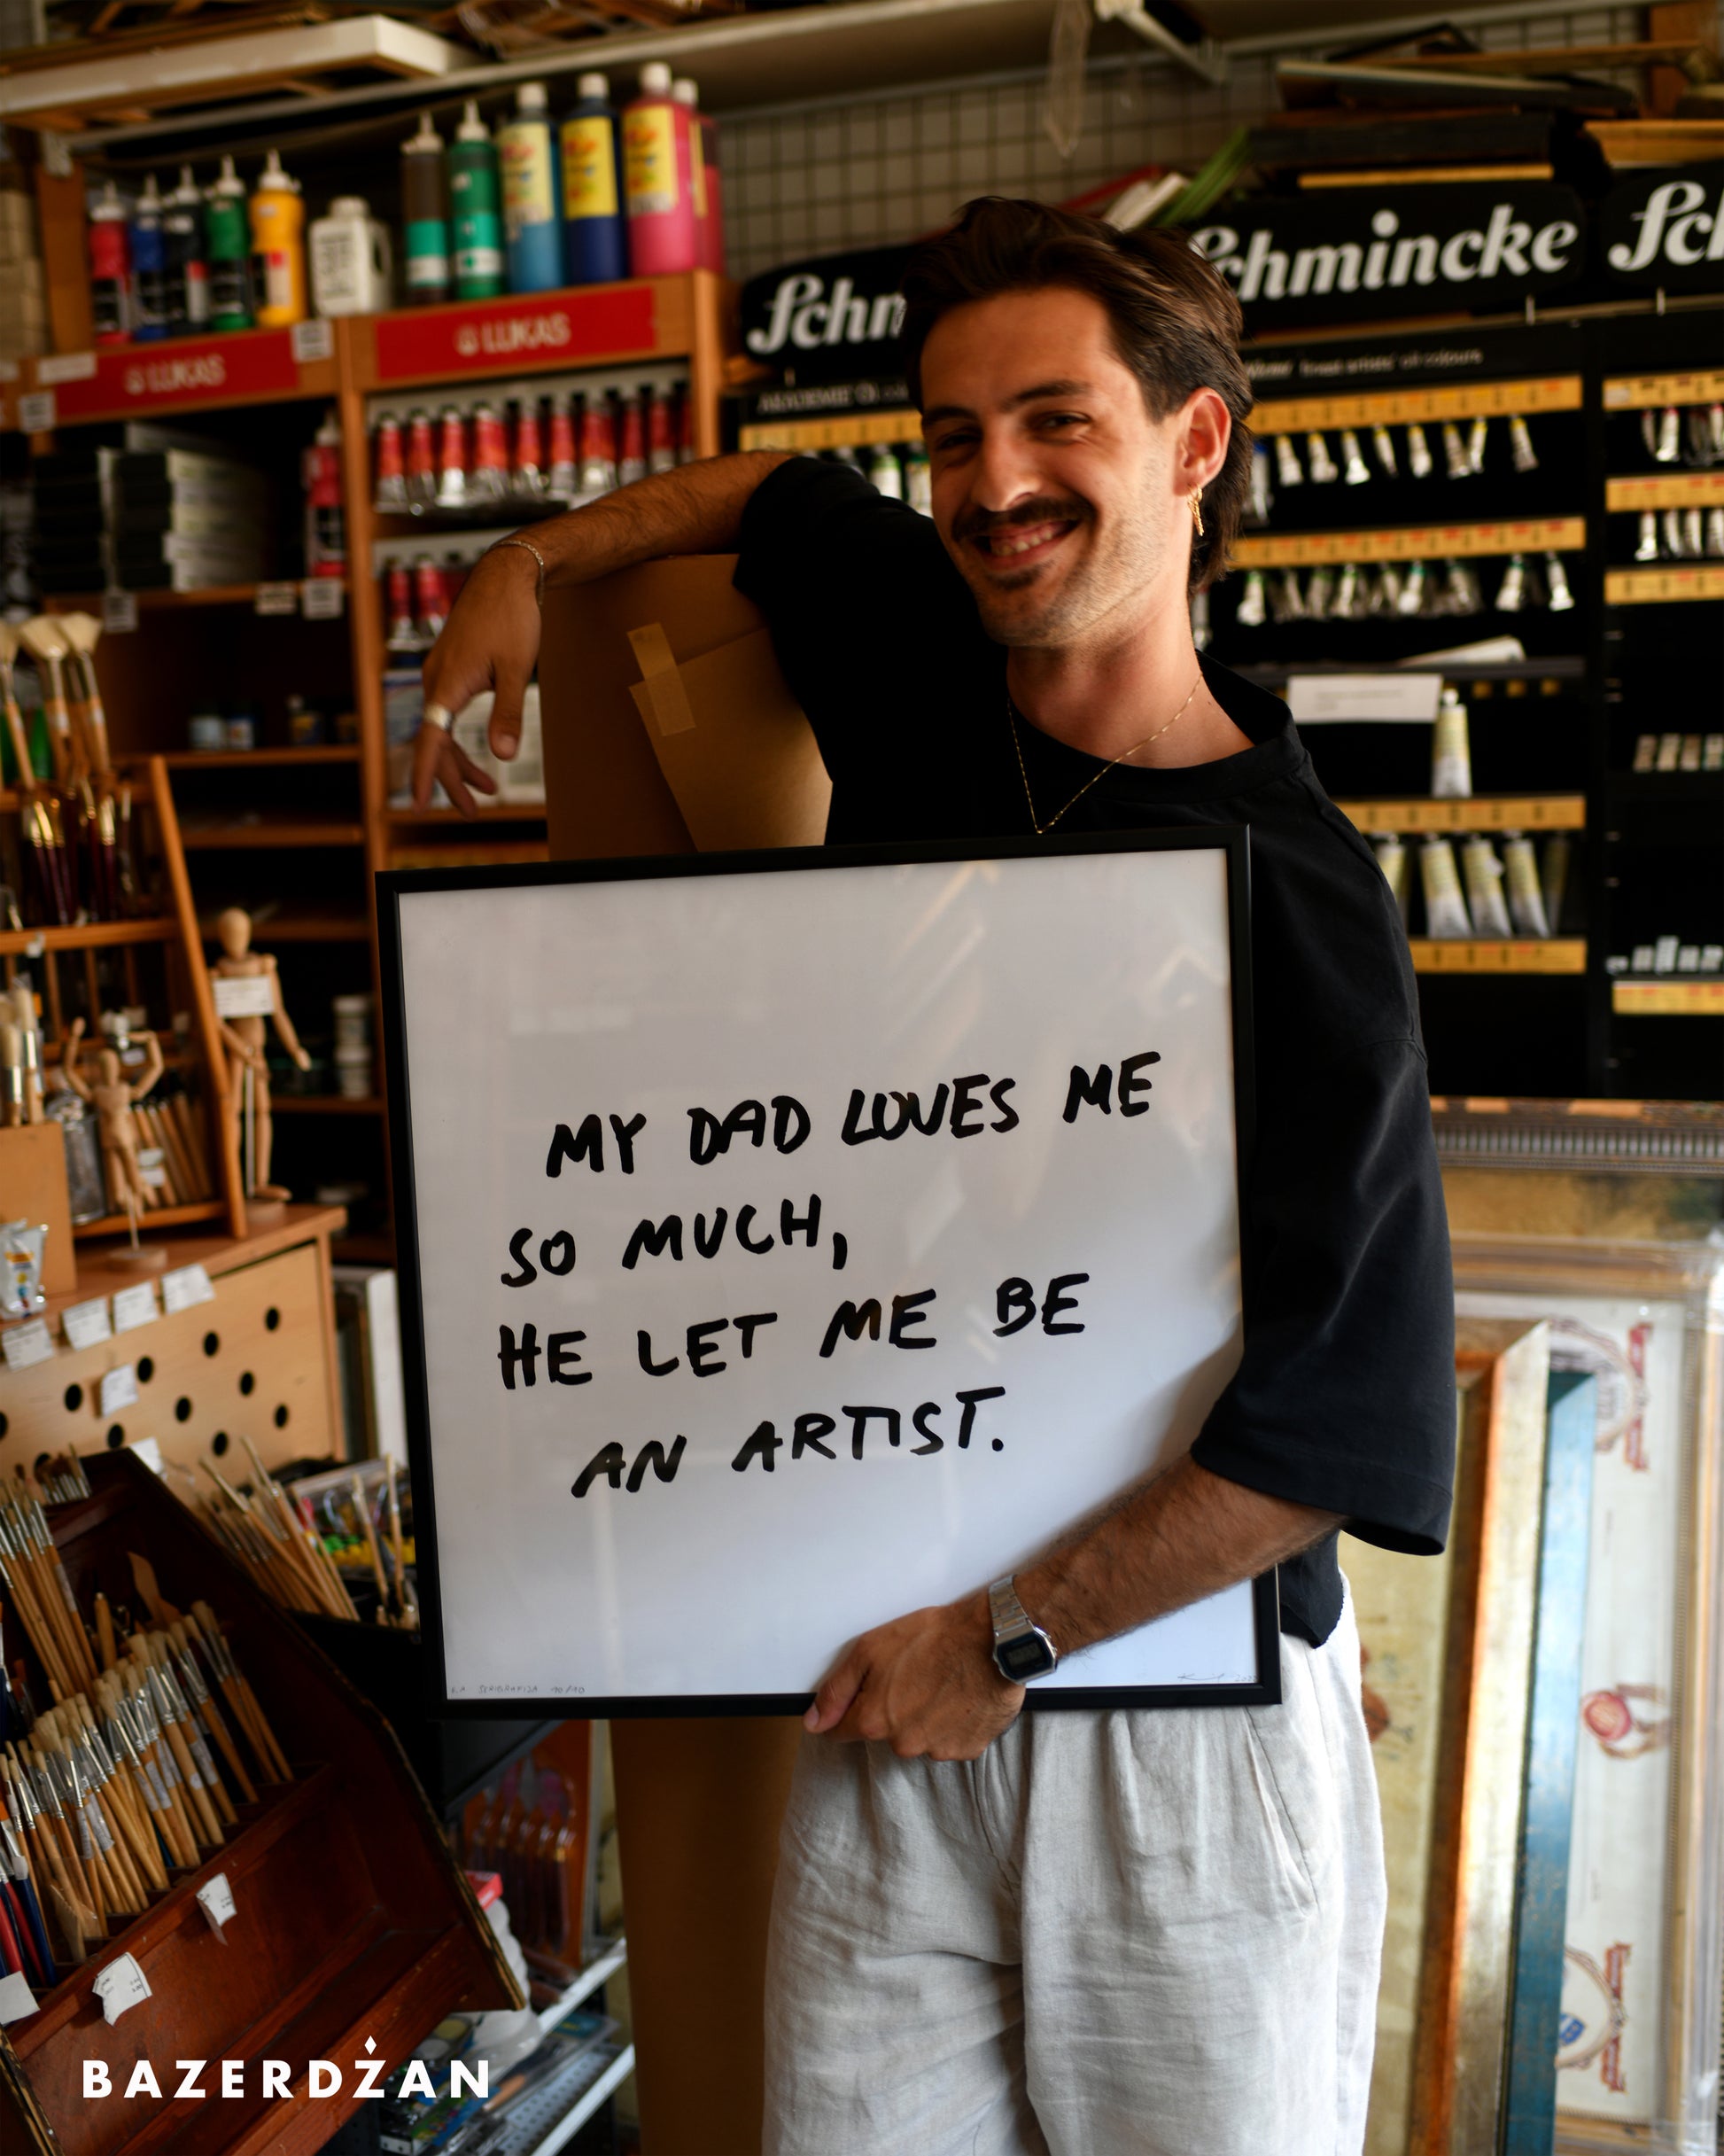 LUKAS
LUKAS
Schm
Schmincke
Sch
MY DAD LOVES ME
SO MUCH,
HE LET ME BE
AN ARTIST.
BAZERDŻAN